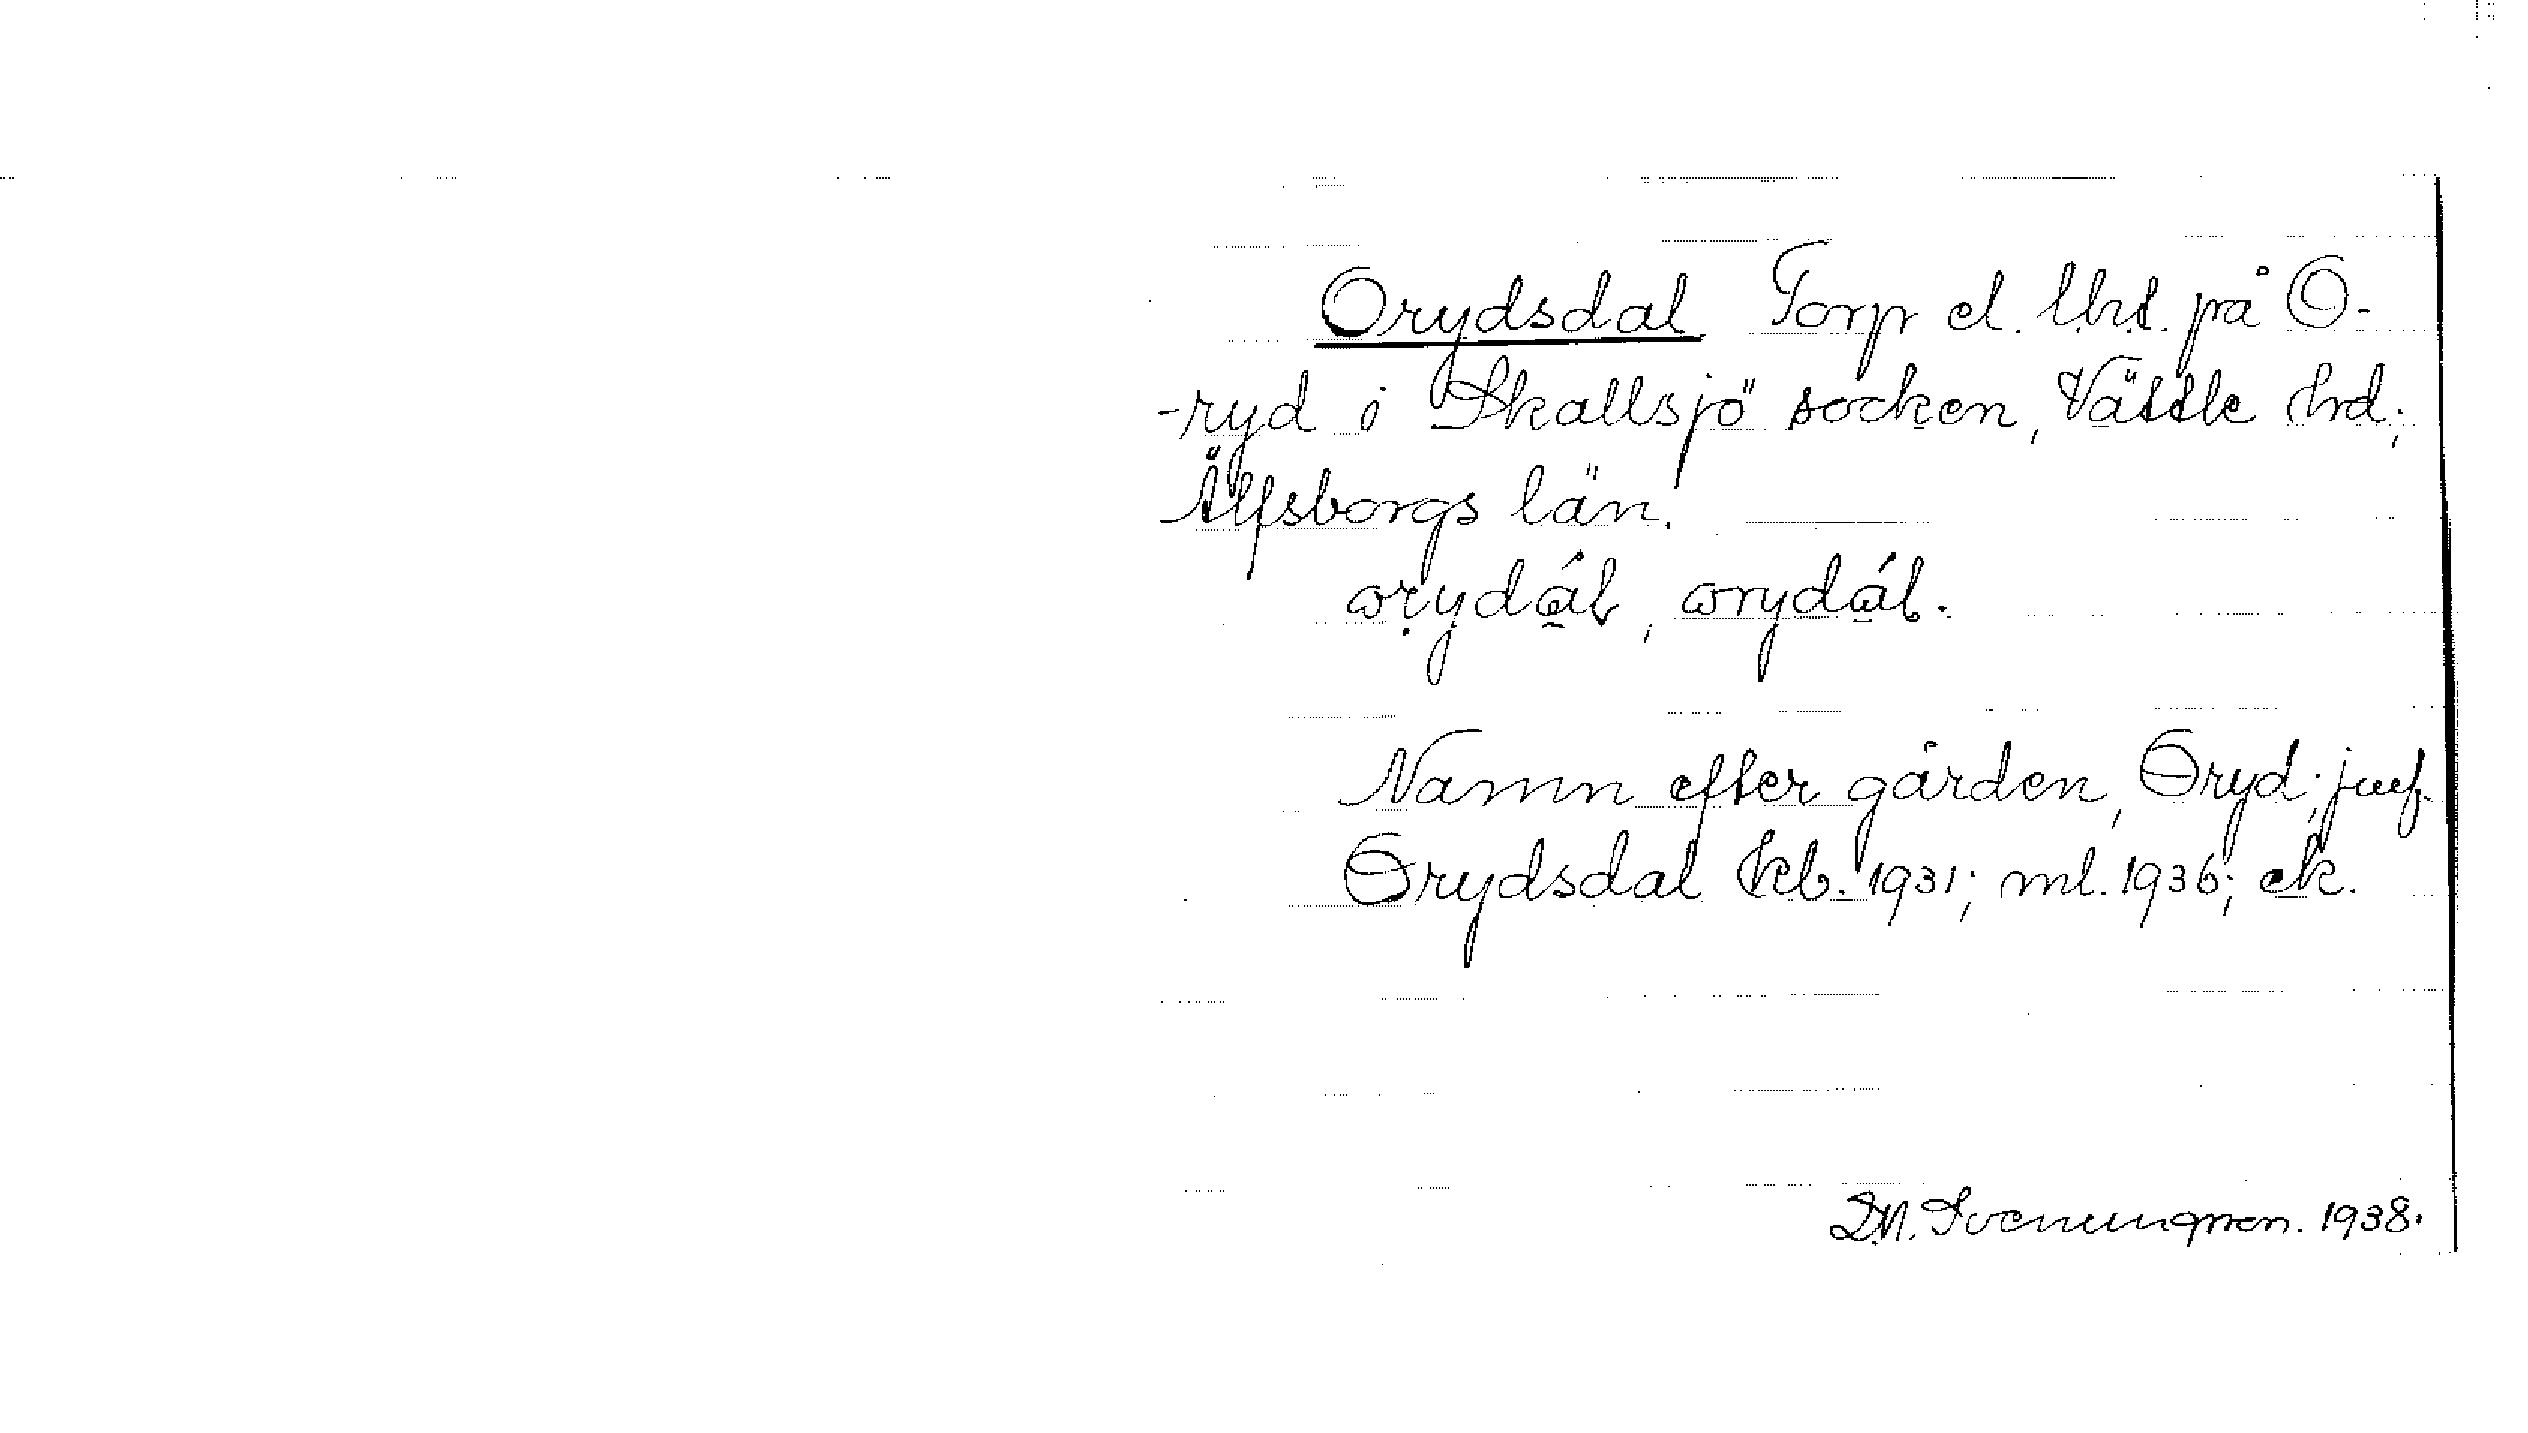 Orydsdal Torp el. lht. på O-
-ryd i Skallsjö socken, Vättle hrd;
Älfsborgs län.
ɷrydál, ɷrydál.
Namn efter gården, Oryd; juf.
Orydsdal kb. 1931; ml. 1936; ek.
1938.